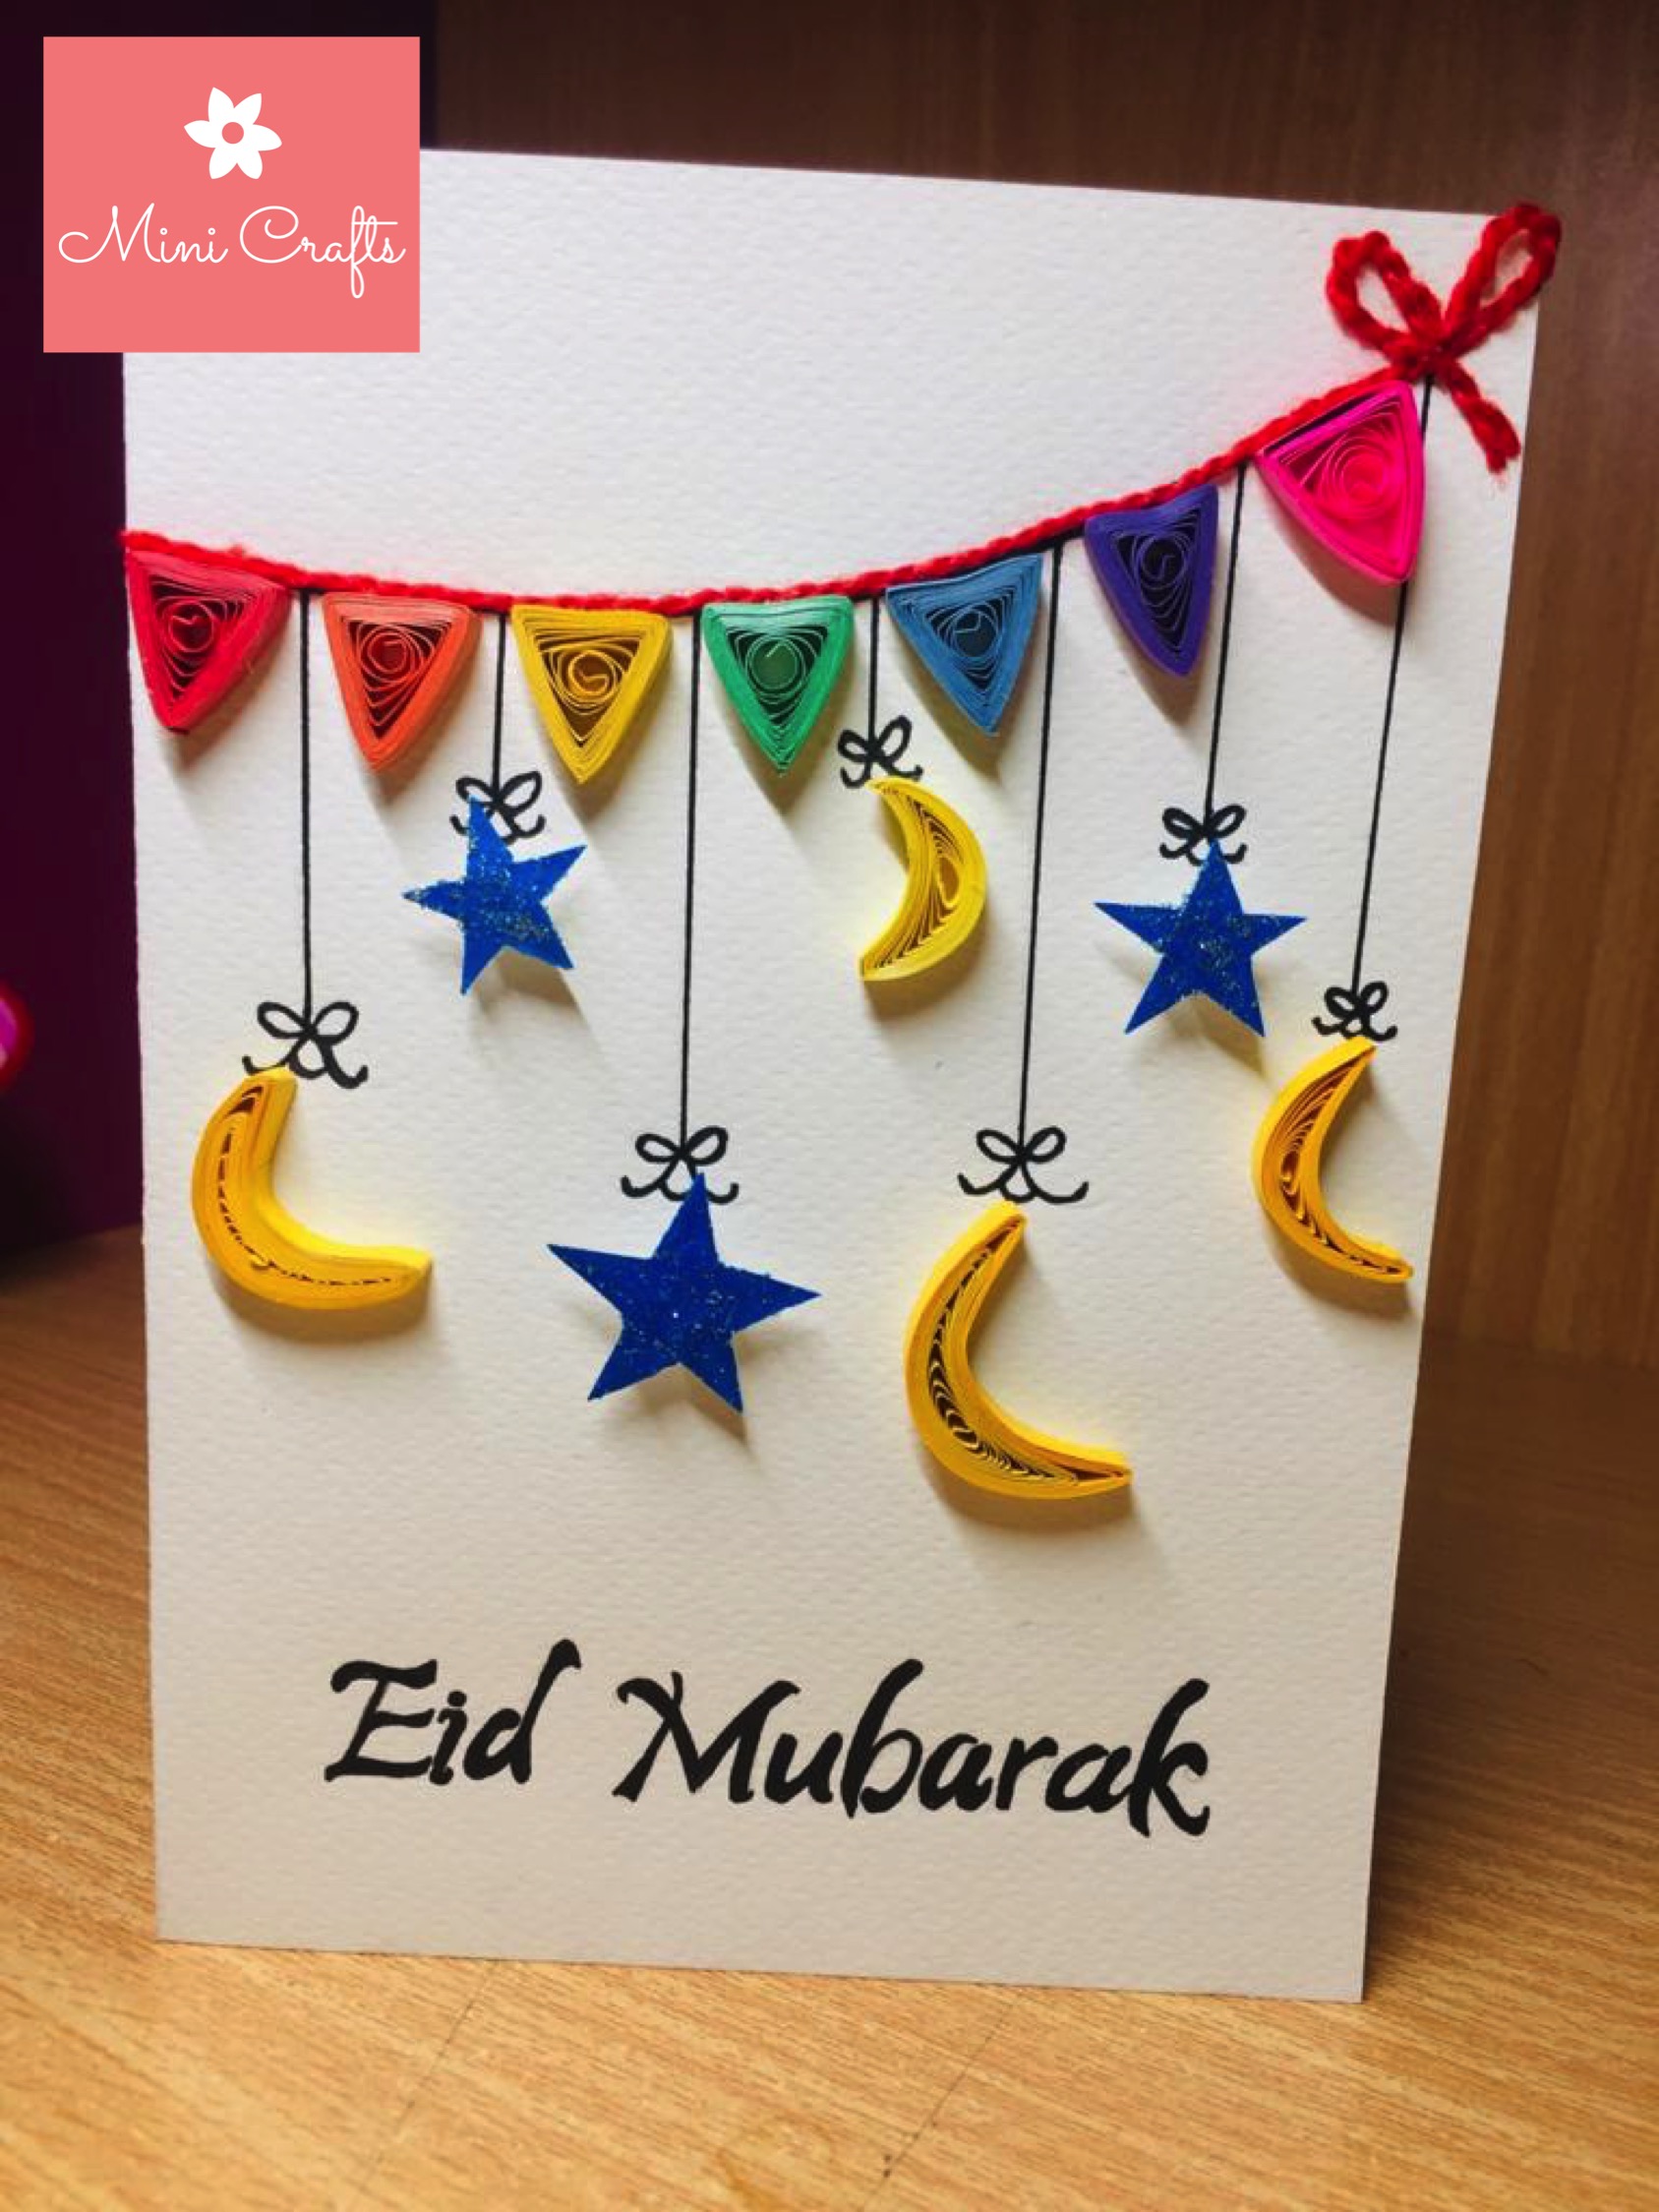 Mini Crafts
Eid Mubarak